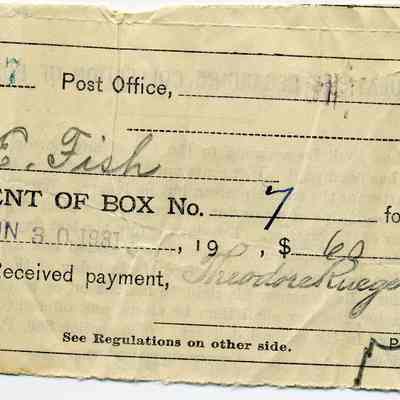 7 Post Office,
E. Fish
ENT OF BOX No. 7 fo
UN 30 1897, 190 , $ 60
Received payment, Theodore Ruege
See Regulations on other side. P